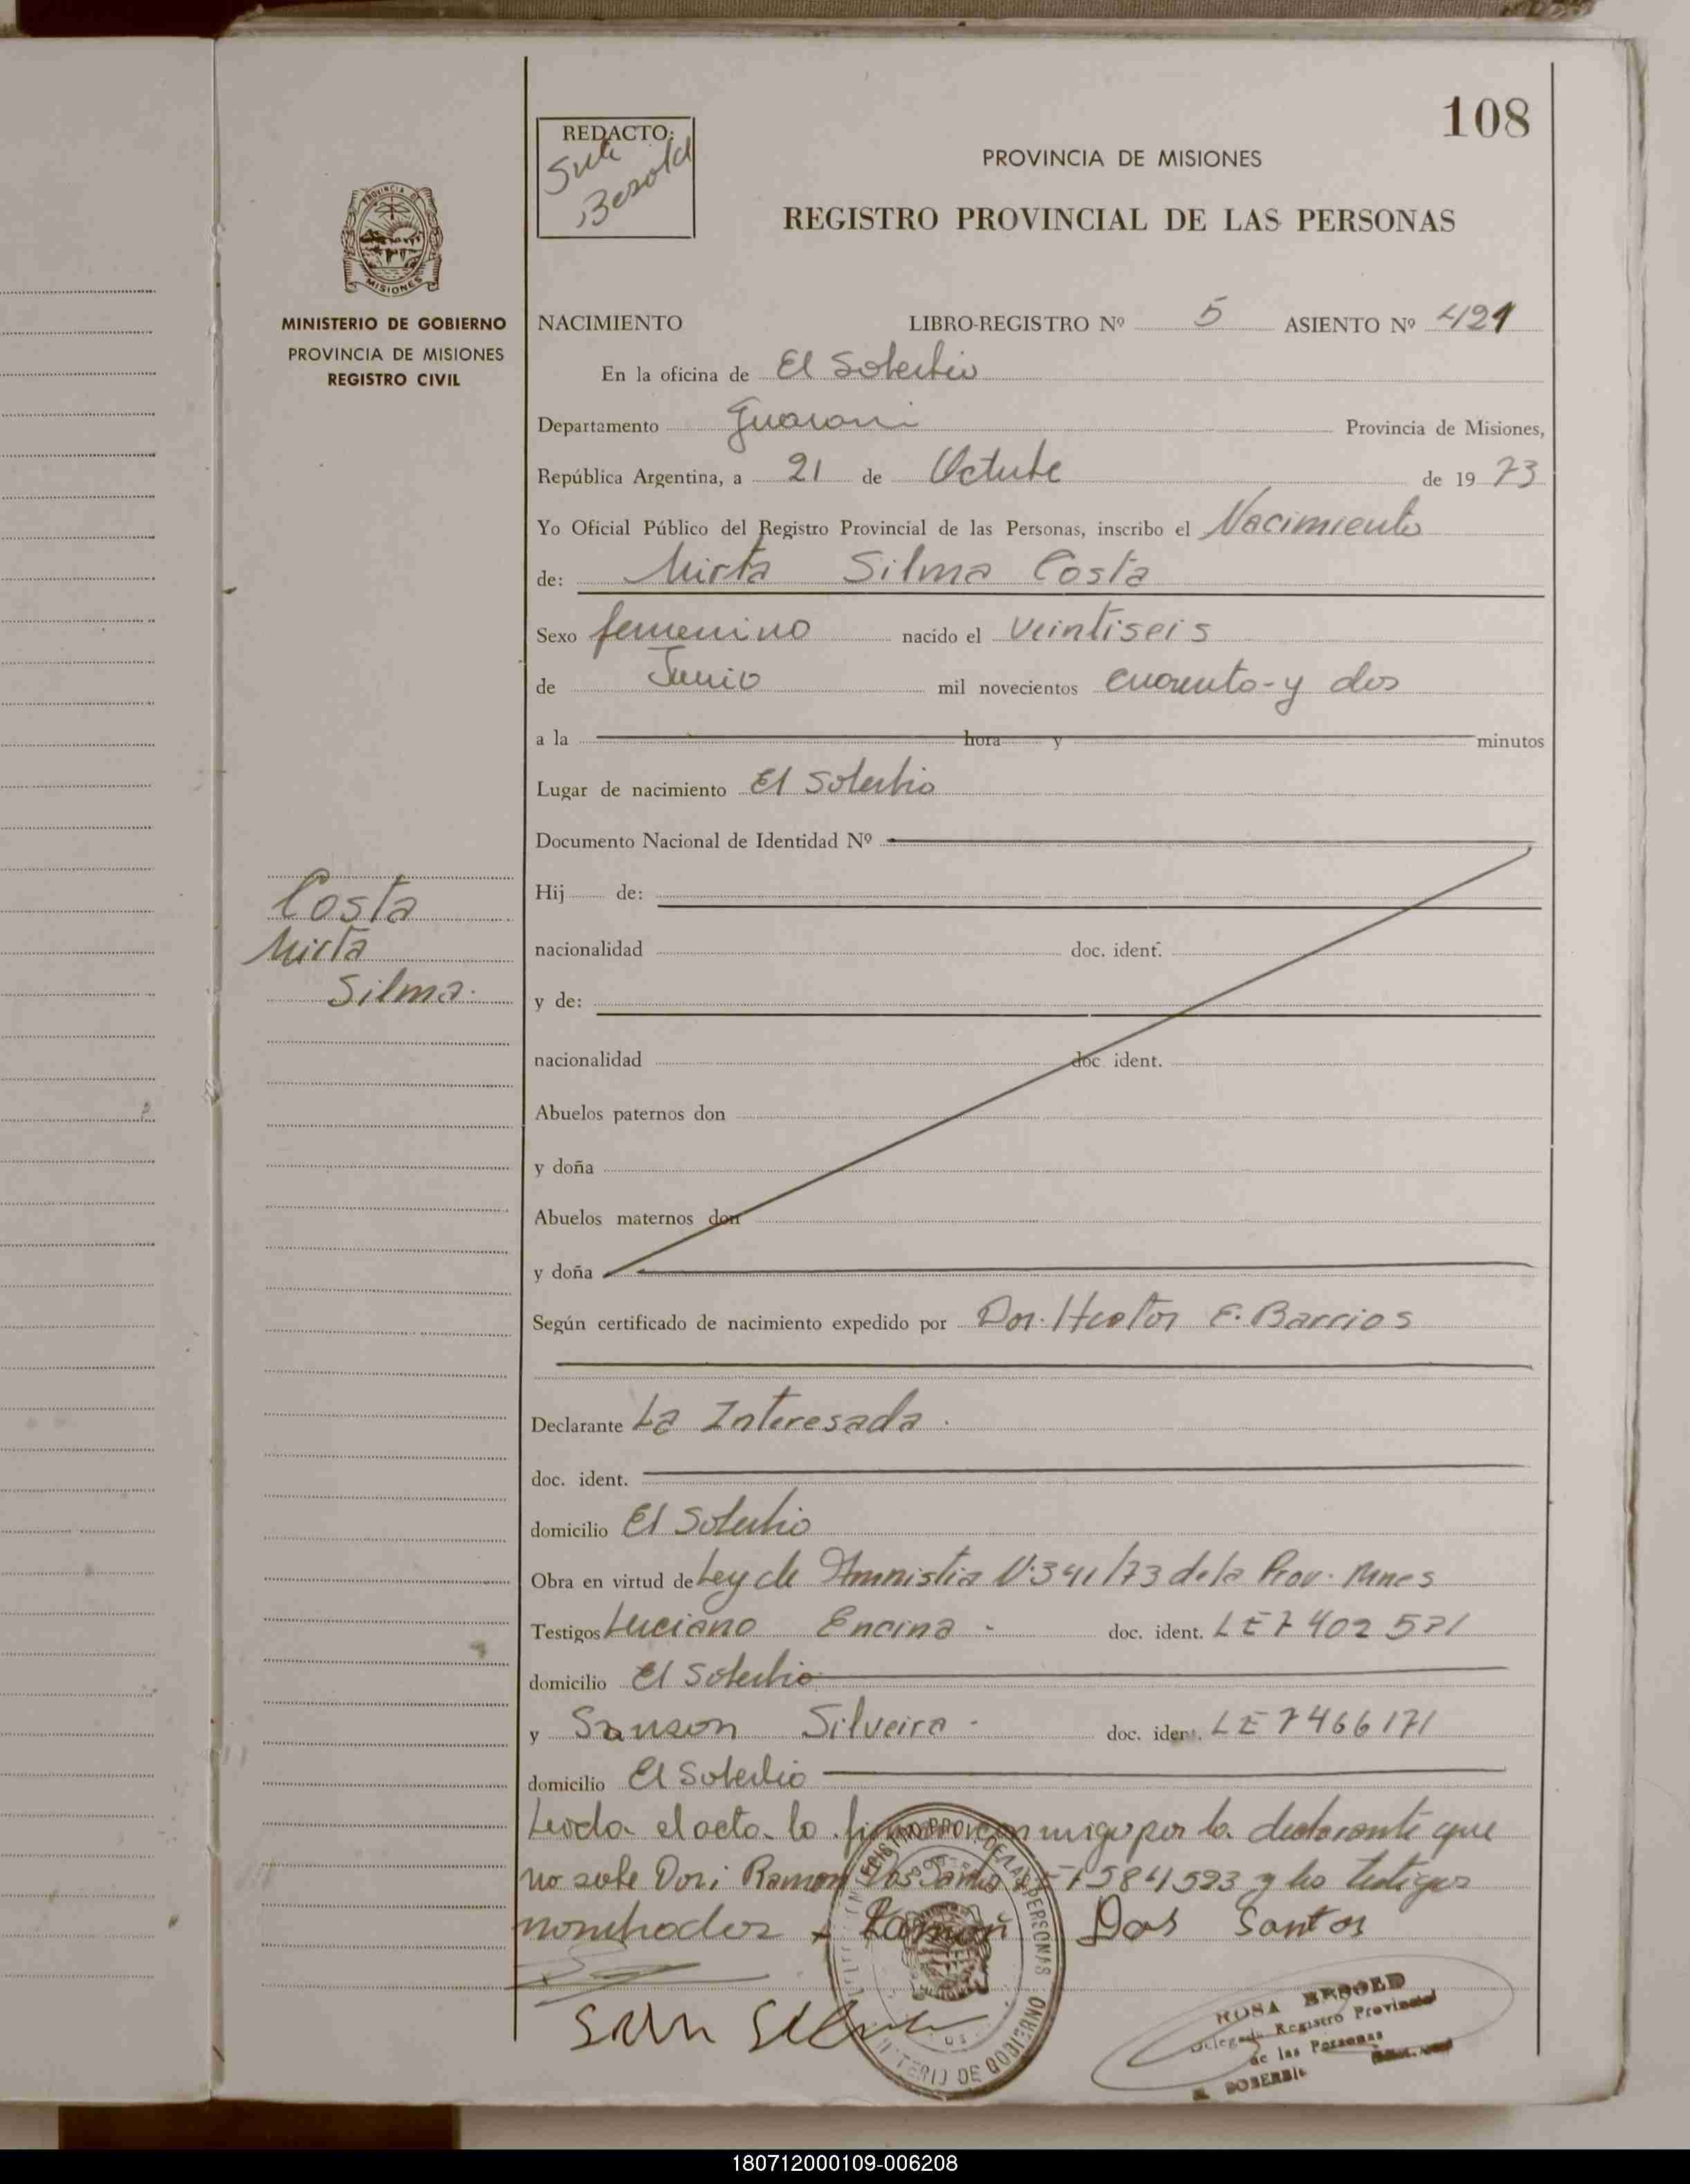 108
REDACTO:
Suli
Besold
PROVINCIA DE MISIONES
REGISTRO PROVINCIAL DE LAS PERSONAS
PROVINCIA DE
MISIONES
MINISTERIO DE GOBIERNO
PROVINCIA DE MISIONES
REGISTRO CIVIL
NACIMIENTO LIBRO-REGISTRO Nº 5 ASIENTO Nº 421
En la oficina de El Soberbio
Departamento Guarani Provincia de Misiones,
República Argentina, a 21 de Octubre de 1973
Yo Oficial Público del Registro Provincial de las Personas, inscribo el Nacimiento
de: Mirta Silma Costa
Sexo femenino nacido el veintiseis
de Junio mil novecientos cuarenta-y dos
a la hora y minutos
Lugar de nacimiento El Soberbio
Documento Nacional de Identidad Nº
Hij de:
Costa
Mirta
Silma.
nacionalidad doc. ident.
y de:
nacionalidad doc. ident.
Abuelos paternos don
y doña
Abuelos maternos don
y doña
Según certificado de nacimiento expedido por Dor. Hector E. Barrios
Declarante La Interesada.
doc. ident.
domicilio El Soberbio
Obra en virtud de Ley de Amnistia Nº 341/73 de la Prov. Mnes
Testigos Luciano Encina - doc. ident. LE 7 402 571
domicilio El Soberbio
y Sanson Silveira - doc. ident. LE 7466171
domicilio El Soberbio
Leida el acta lo firman conmigo por la declarante que
no sabe Don: Ramon Dos Santos 7584593 y los testigos
nombrados Ramon Dos Santos
REGISTRO PROV. DE LAS PERSONAS
MINISTERIO DE GOBIERNO
ROSA
Delegada Registro Provincial
de las Personas
EL SOBERBIO
180712000109-006208